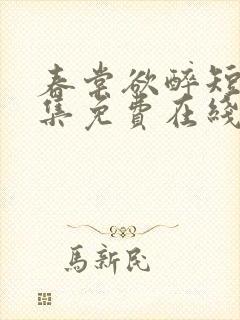 春棠欲醉短
集免費在綫
馬新民